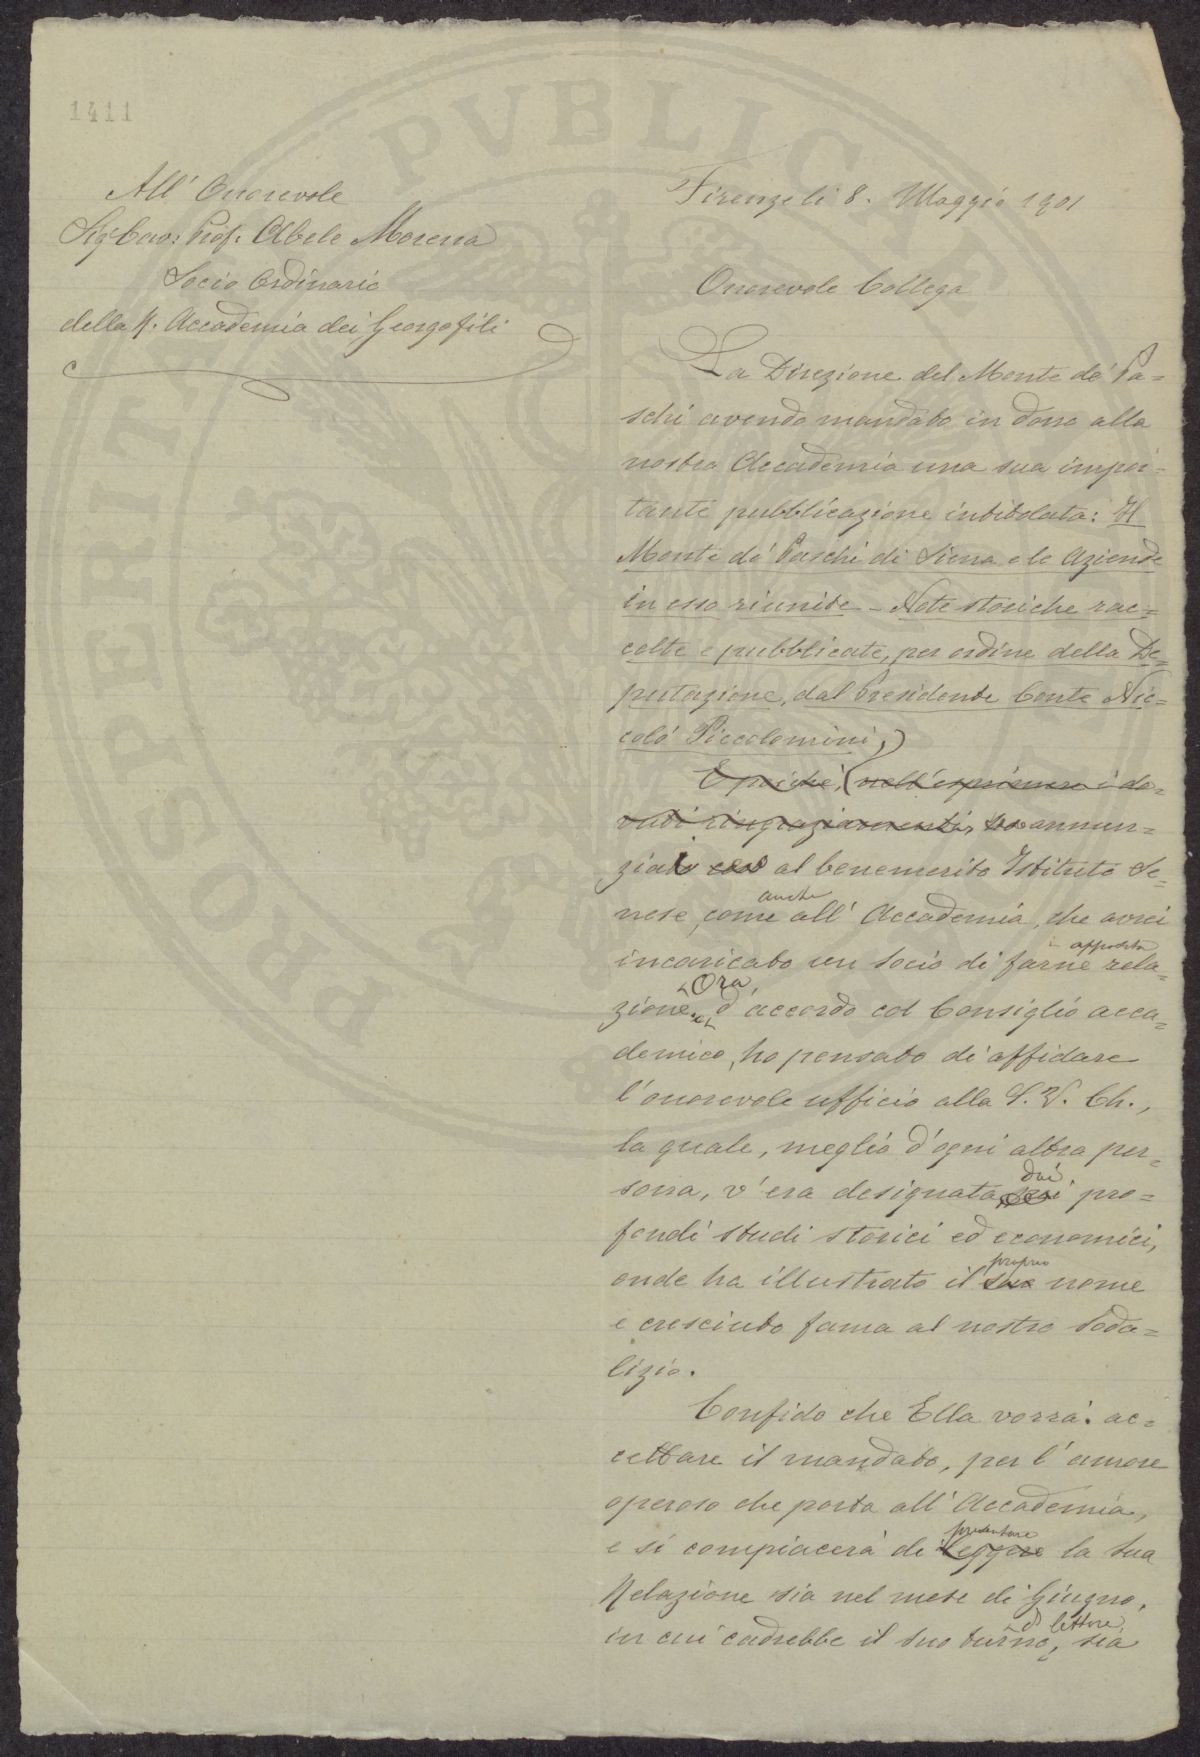 1411
All' Onorevole
Sig. Cav. Prof. Abele Morena
Socio Ordinario
della R. Accademia dei Georgofili
Firenze li 8. Maggio 1901
Onorevole Collega
La Direzione del Monte de' Pa=
schi avendo mandato in dono alla
nostra Accademia una sua impor=
tante pubblicazione intitolata: Il
Monte de' Paschi di Siena e le Aziende
in esso riunite - Note storiche rac=
colte e pubblicate, per ordine della De=
putazione, dal Presidente Conte Nic=
colò Piccolomini,
E poichè, nell'esprimere i do=
vuti ringraziamenti, ho annun=
ziai al benemerito Istituto Se=
nese, come anche all' Accademia, che avrei
incaricato un socio di farne apposita rela=
zione. Ora, d'accordo col Consiglio acca=
demico, ho pensato di affidare
l'onorevole ufficio alla S. V. Ch.,
la quale, meglio d'ogni altra per=
sona, v'era designata dai pro=
fondi studi storici ed economici,
onde ha illustrato il suo proprio nome
e cresciuto fama al nostro Soda=
lizio.
Confido che Ella vorrà ac=
cettare il mandato, per l'amore
operoso che porta all' Accademia,
e si compiacerà di leggere presentare la sua
Relazione sia nel mese di Giugno,
in cui cadrebbe il suo turno di letture, sia
PUBLICAE
PROSPERITATI